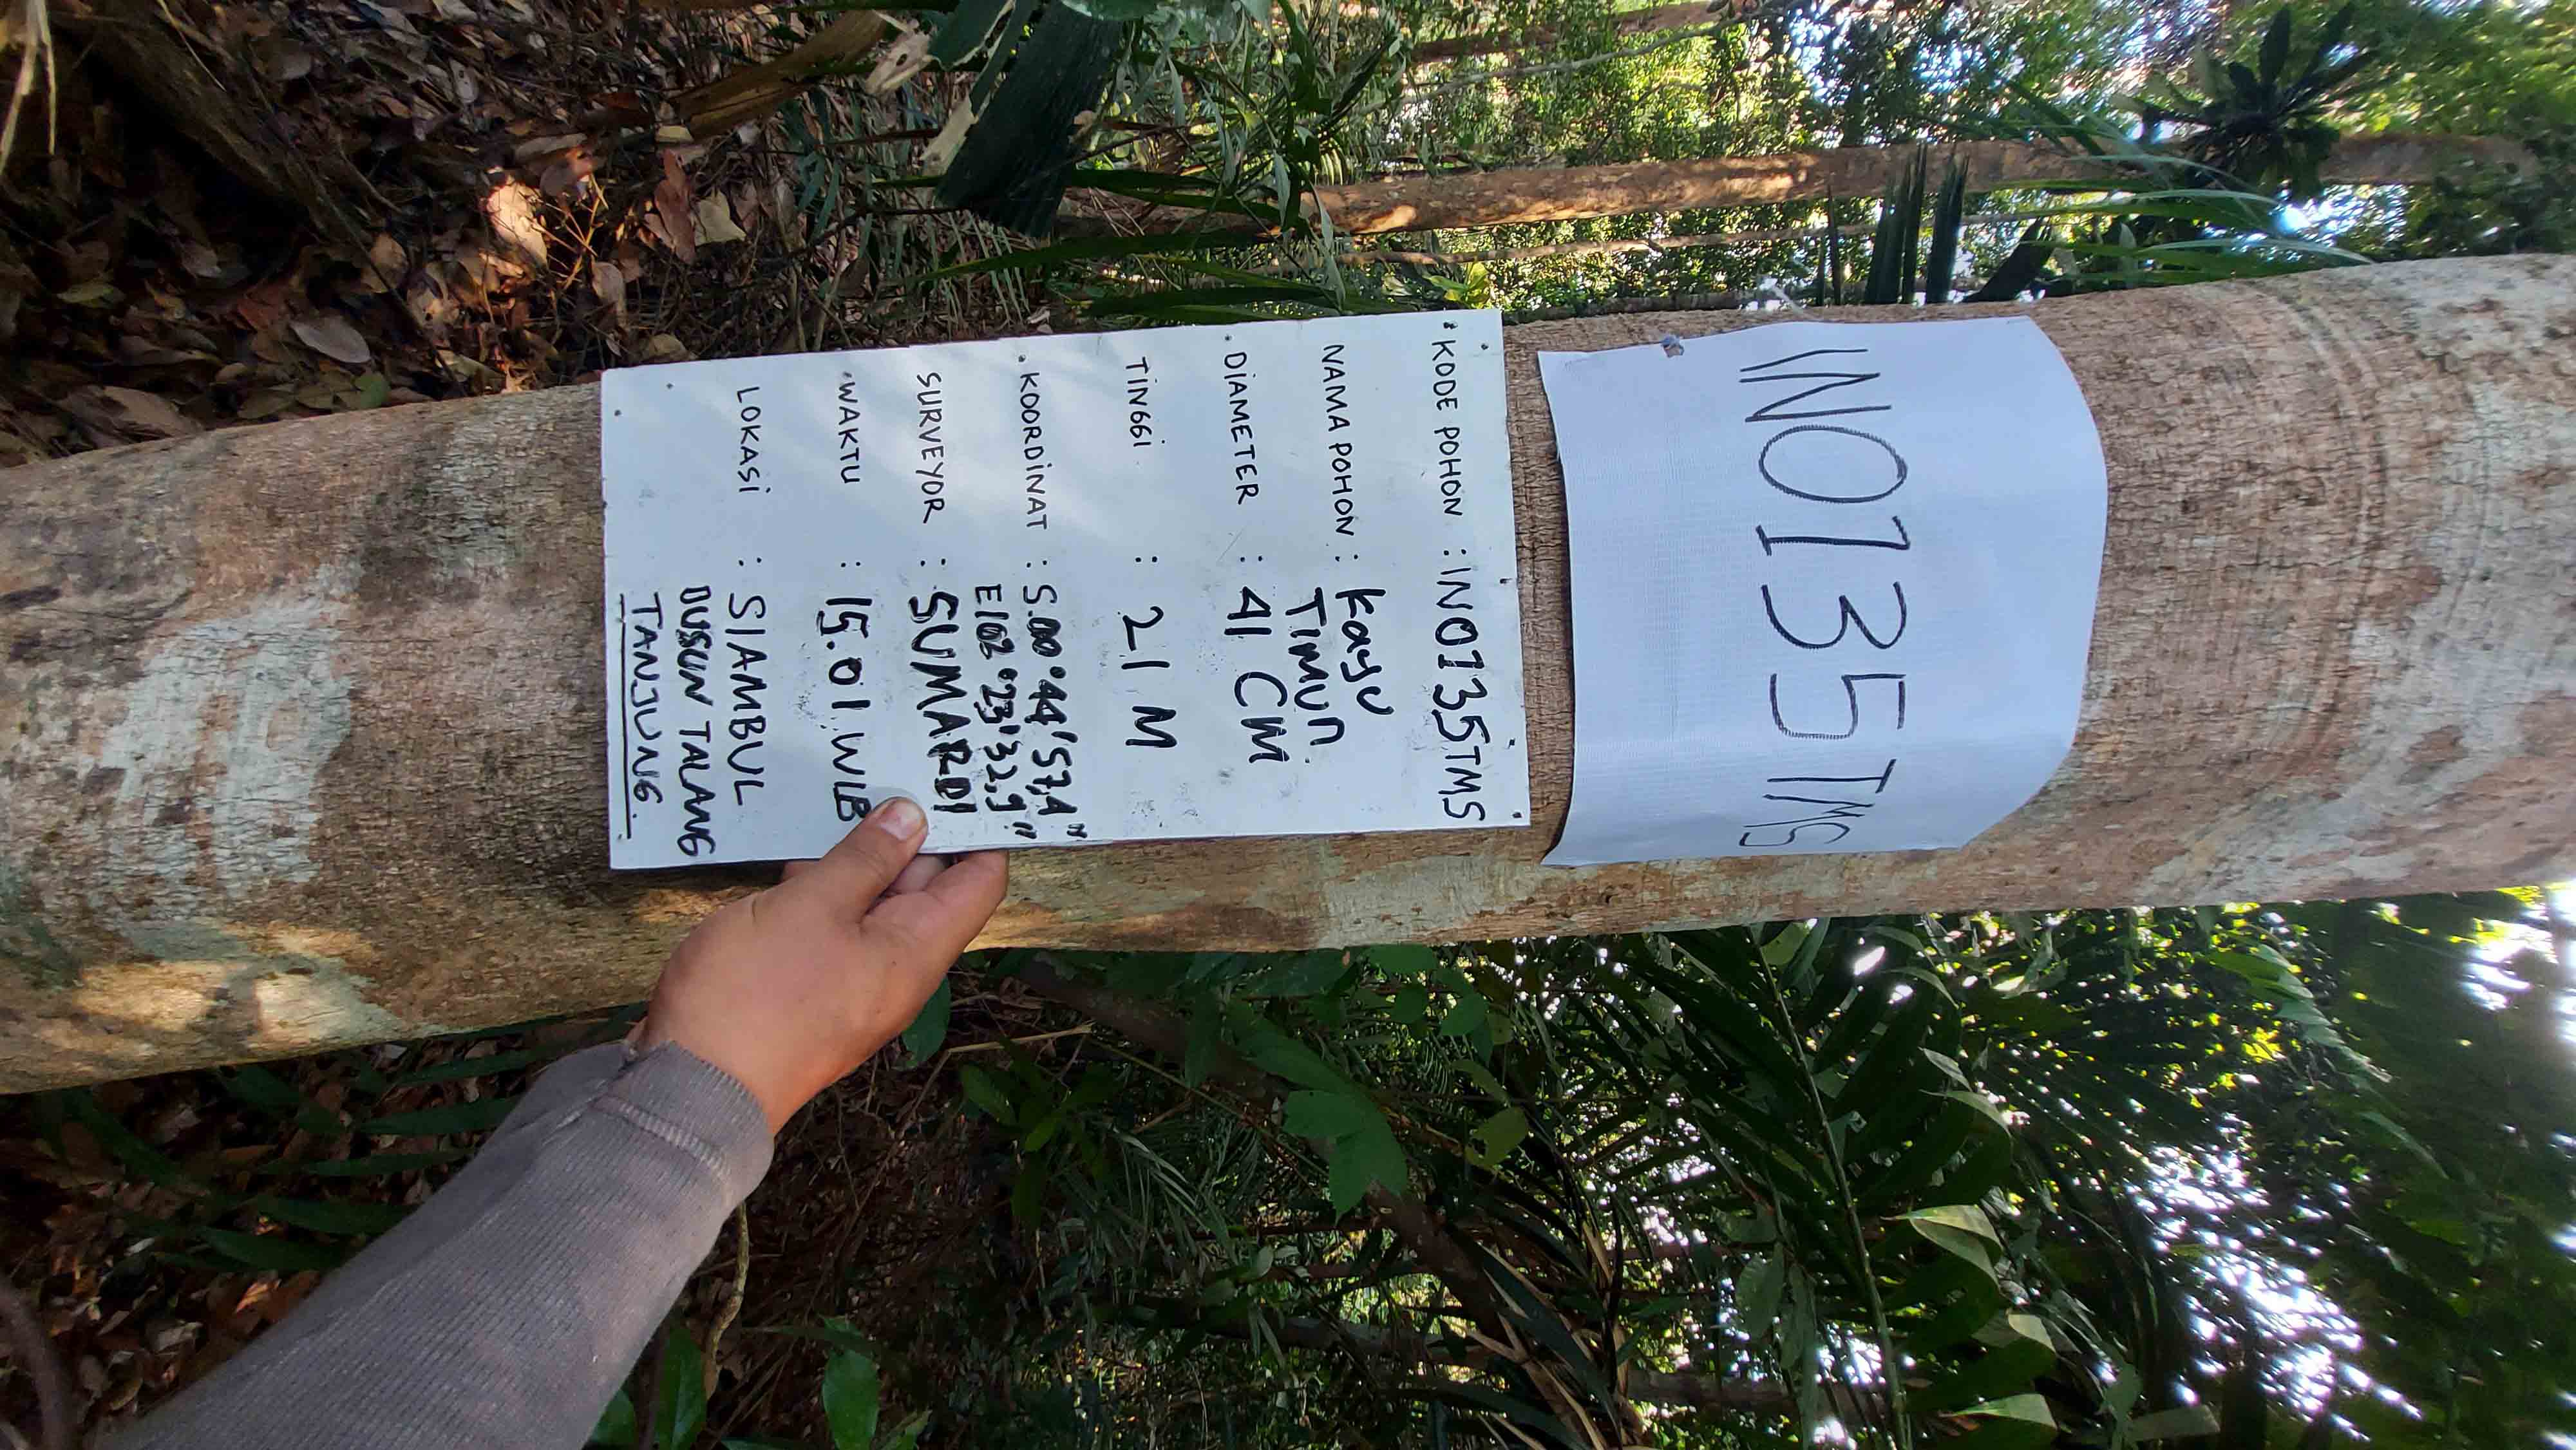 INO135TMS
KODE POHON : INO135TMS
NAMA POHON : Kayu
TIMUN.
DIAMETER : 41 CM
TINGGI : 21 M
KOORDINAT : S.00°44'57,4"
E102°23'32,9"
SURVEYOR : SUMARDI
WAKTU : 15.01 WIB
LOKASI : SIAMBUL
DUSUN TALANG
TANJUNG.